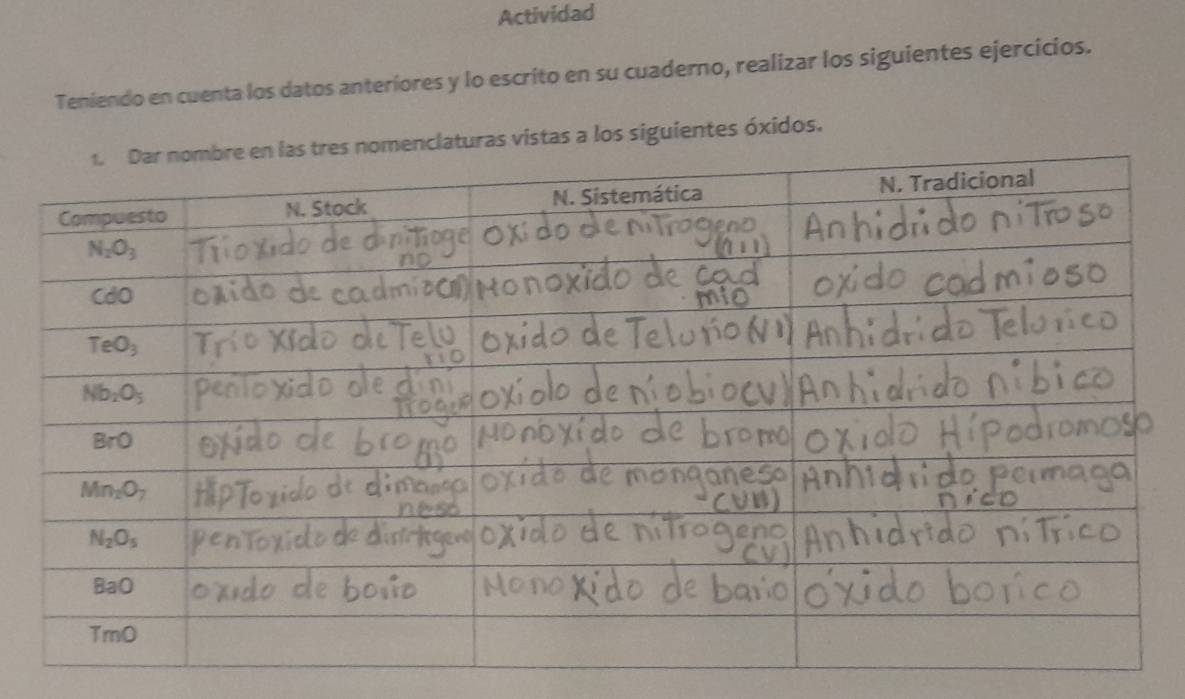 Actividad
Teniendo en cuenta los datos anteriores y lo escrito en su cuaderno, realizar los siguientes ejercicios.
1. Dar nombre en las tres nomenclaturas vistas a los siguientes óxidos.
Compuesto N. Stock N. Sistemática N. Tradicional
N₂O₃ Trioxido de dinitroge oxido de nitrogeno Anhidrido nitroso
no (III)
CdO oxido de cadmio(II) Monoxido de cad oxido cadmioso
mio
TeO₃ Trioxido de Telu oxido de Telurio(VI) Anhidrido Telurico
rio
Nb₂O₅ pentoxido de dini oxido de niobio(V) Anhidrido nibico
BrO oxido de bromo Monoxido de bromo oxido Hipodromoso
(II)
Mn₂O₇ HepToxido de dimanga oxido de monganeso Anhidrido permaga
neso (VII) nico
N₂O₅ penToxido de dinitrogeno oxido de nitrogeno Anhidrido niTrico
(V)
BaO oxido de bario Monoxido de bario óxido borico
TmO